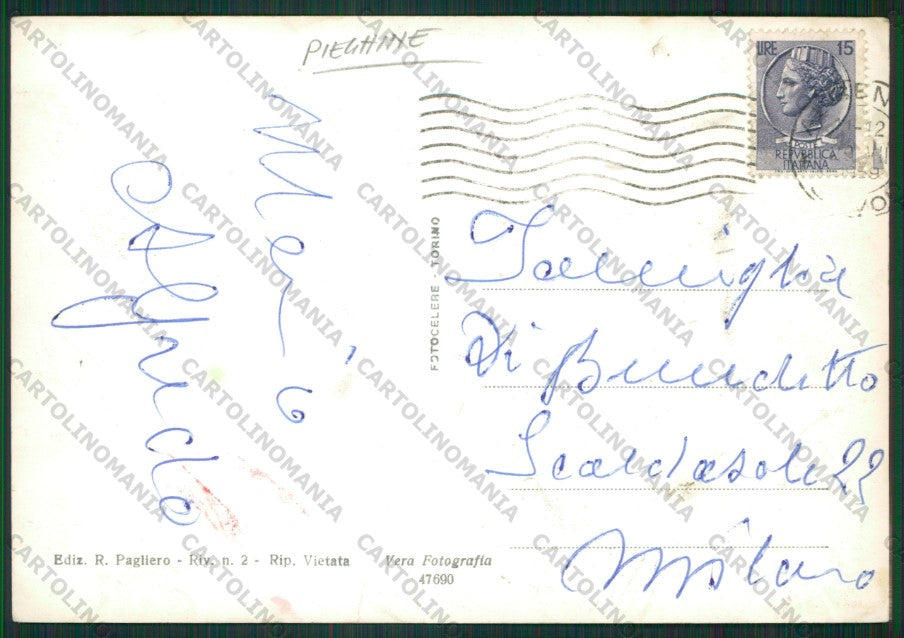 PIEGHNYE
LIRE 15
POSTE
REPVBBLICA
ITALIANA
12
59
Alfredo
FOTOCELERE - TORINO
Famiglia
Di Benedetto
Scaldasole 22
Milano
Ediz. R. Pagliero - Riv. n. 2 - Rip. Vietata
Vera Fotografia
47690
CARTOLINOMANIA